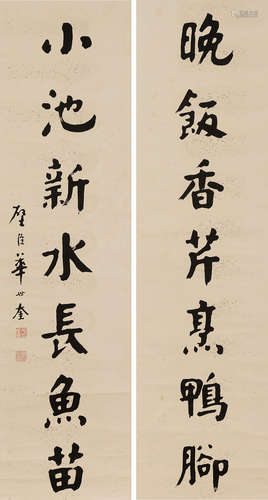 晚飯香芹烹鴨腳
小池新水長魚苗
璧臣華世奎